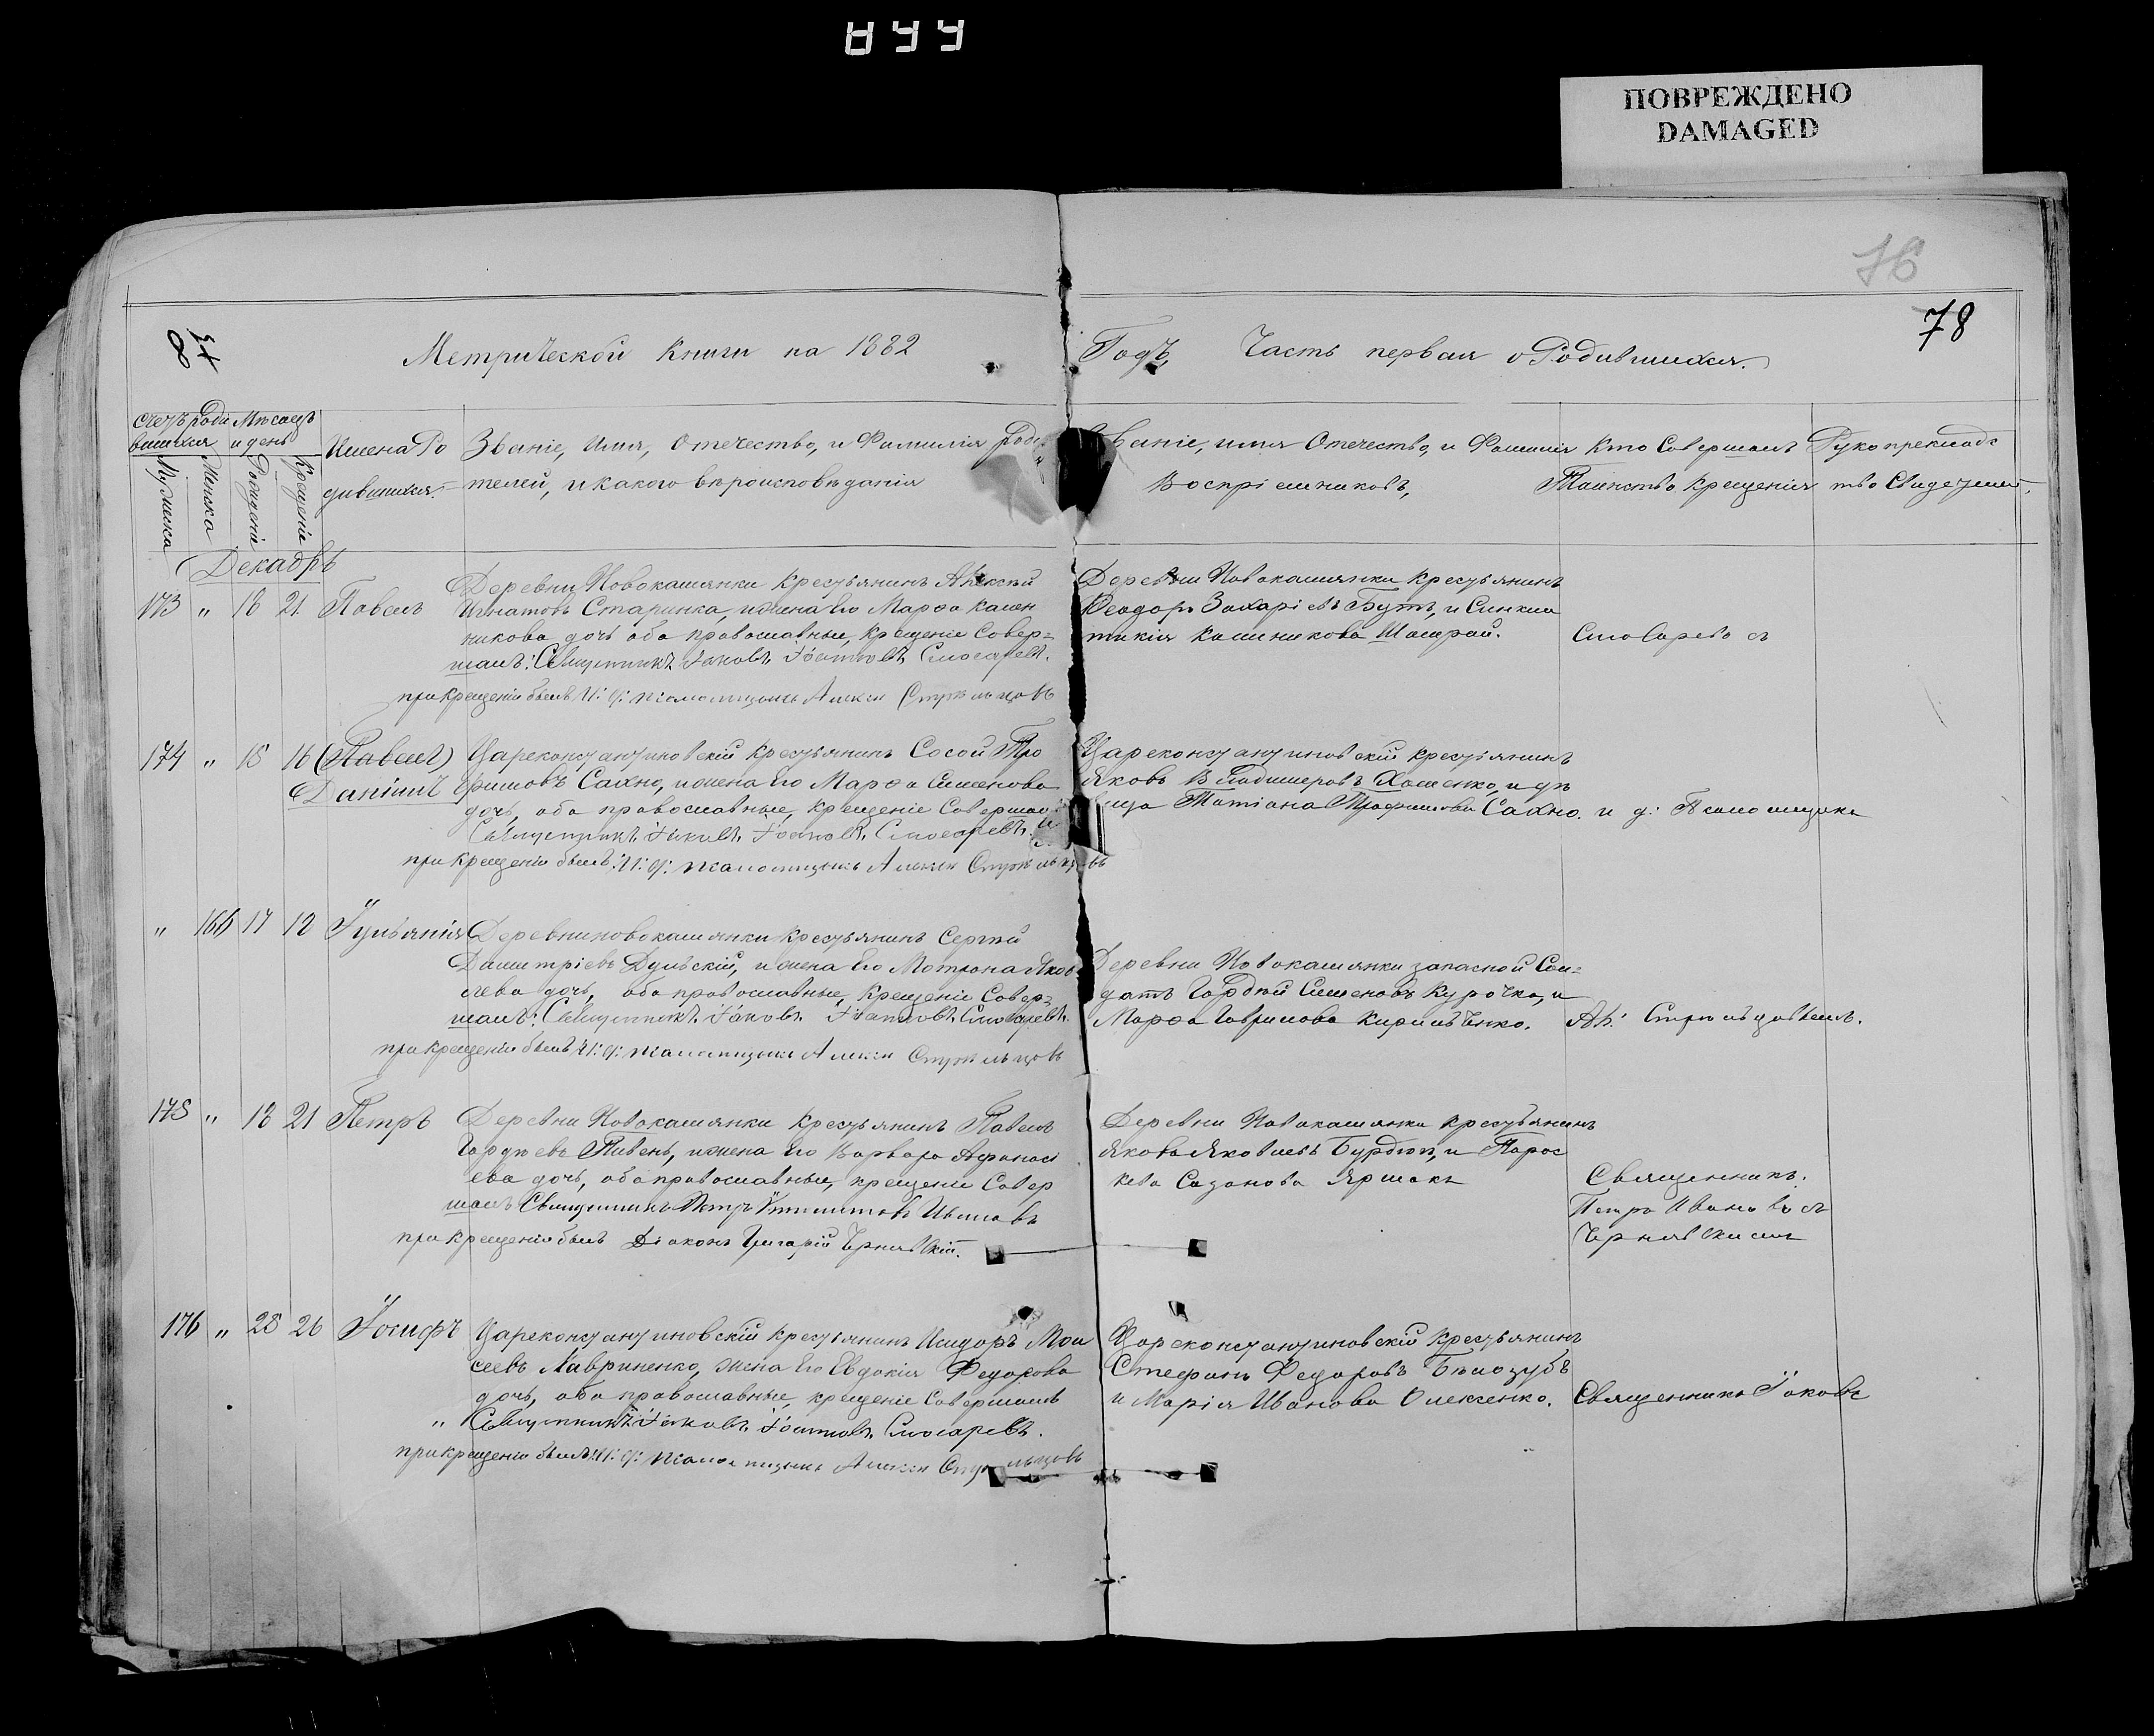 ПОВРЕЖДЕНО
DAMAGED
76
78
Метрической Книги на 1882
Годъ, Часть первая о Родившихся.
Счетъ роди
вшихся
Мѣсяцъ
и день
Мужеска
Женска
Рожденіе
Крещеніе
Имена Ро
дившихся.
Званіе, Имя, Отечество, и Фамилія роди
телей, и какого вѣроисповѣданія
Званіе, имя Отечество, и Фамилія
Воспріемниковъ,
Кто Совершалъ
Таинство Крещенія
Рукоприклад
тво Свидет
Декабрь
173 " 18 21 Павелъ
Деревни Новокамянки Крестьянинъ Алексѣй
Игнатовъ Старинка, и жена Его Марфа Калин
никова дочь оба православные, Крещеніе Совер=
шалъ: Священникъ Іаковъ Іоанновъ Слюсаревъ.
при крещеніи былъ И: д: псаломщика Алексѣй Стрѣльцовъ
Деревни Новокамянки Крестьянинъ
Феодоръ Захаріевъ Бутъ, и Синкли
тикія Калиникова Шамрай.
Слюсаревъ съ
174 " 15 16 (Павелъ)
Даніилъ
Цареконстантиновскій Крестьянинъ Сосой Тро
фимовъ Сахно, и жена Его Марфа Семенова
дочь, оба православные, Крещеніе Совершалъ
Священникъ Іаковъ Іоанновъ Слюсаревъ.
при Крещеніи былъ: И: д: псаломщика Алексѣй Стрѣльцовъ
Цареконстантиновскій Крестьянинъ
Яковъ Владимеровъ Хоменко, и дѣ
вица Татіана Трофимова Сахно.
и д: Псаломщика
" 166 17 19 Іуліянія
Деревни новокамянки Крестьянинъ Сергѣй
Дмитріевъ Дульскій, и жена Его Матрона Яков
лева дочь, оба православные, Крещеніе Совер=
шалъ: Священникъ Іаковъ Іоанновъ Слюсаревъ.
при Крещеніи былъ И: д: псаломщика Алексѣй Стрѣльцовъ
Деревни Новокамянки запасной Сол=
датъ Гордѣй Семеновъ Курочка, и
Марфа Гаврилова Кирильченко.
Ал: Стрѣльцовымъ.
175 " 18 21 Петръ
Деревни Новокамянки Крестьянинъ Павелъ
Гордѣевъ Пивень, и жена Его Варвара Афанась
ева дочь, оба православные, крещеніе Совер
шалъ Священникъ Петръ Ивановъ
при Крещеніи былъ Діаконъ Григорій Чернявскій.
Деревни Новокамянки Крестьянинъ
Яковъ Яковлевъ Бурдюгъ, и Парас
кева Сазонова Яршакъ
Священникъ.
Петръ Ивановъ съ
Чернявскимъ
176 " 25 26 Іосифъ
Цареконстантиновскій Крестьянинъ Исидоръ Мои
сеевъ Лавриненко, жена Его Евдокія Федорова
дочь, оба православные, крещеніе Совершалъ
" Священникъ: Іаковъ Іоанновъ Слюсаревъ.
при крещеніи былъ: И: д: псаломщика Алексѣй Стрѣльцовъ
Цареконстантиновскій Крестьянинъ
Стефанъ Федоровъ Бѣлозубъ
и Марія Иванова Олексенко.
Священникъ Іаковъ